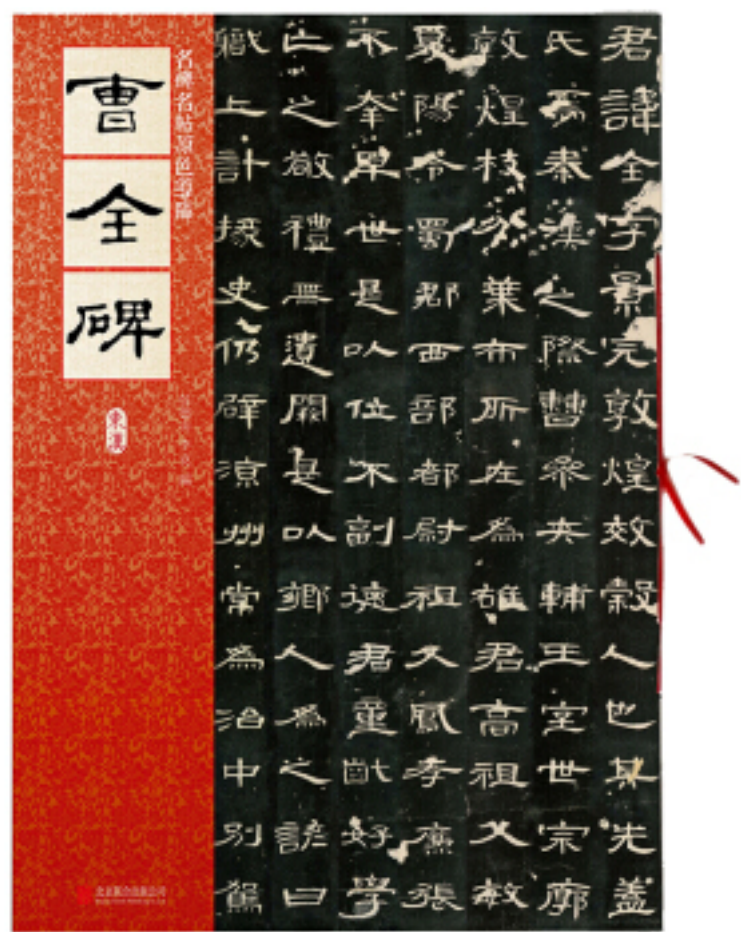 曹全碑
名碑名帖原色導臨
東漢
北京联合出版公司
君諱全字景完敦煌效穀人也其先蓋
氏焉秦漢之際曹參夾輔王室世宗廓
敦煌枝分葉布所在為雄君高祖父敏
夏陽令蜀郡西部都尉祖父鳳孝廉張
不幸早世是以位不副德君童齔好學
亡之敬禮無遺闕是以鄉人為之諺曰
職上計掾史仍辟涼州常為治中別駕